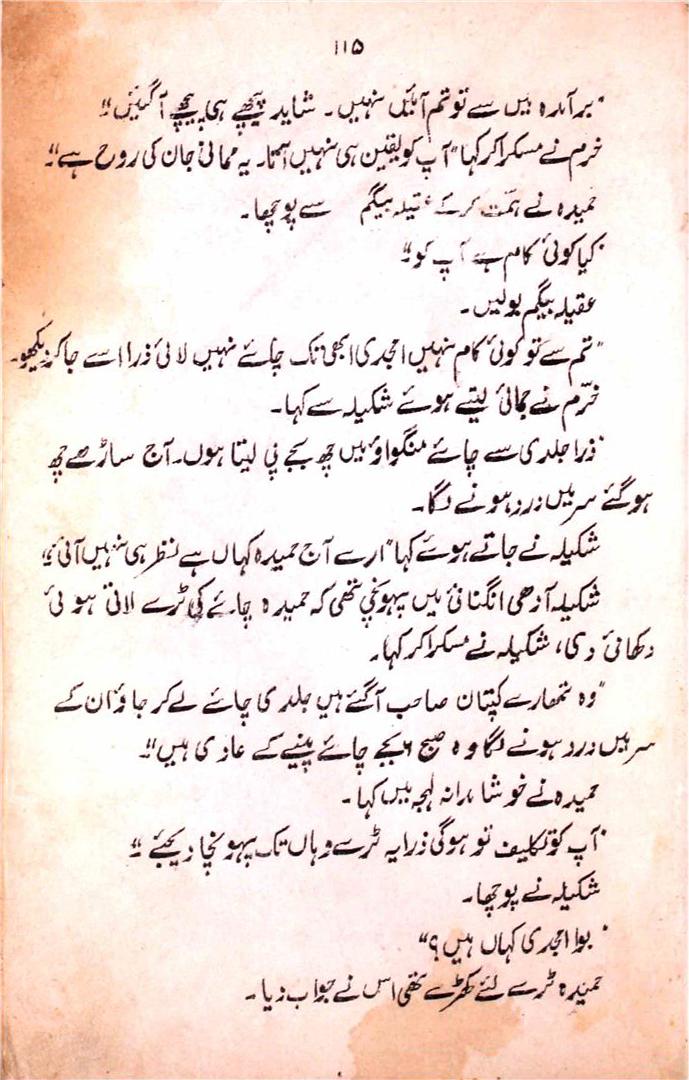 ۱۱۵
"برآمدہ میں سے تو تم آئیں نہیں۔ شاید پیچھے ہی پیچھے آگئیں"
خرم نے مسکرا کر کہا "آپ کو یقین ہی نہیں آتا۔ یہ ممانی جان کی روح ہے"۔
حمیدہ نے ہمت کرکے عقیلہ بیگم سے پوچھا۔
"کیا کوئی کام ہے آپ کو"
عقیلہ بیگم بولیں۔
"تم سے تو کوئی کام نہیں امجدی ابھی تک چائے نہیں لائی ذرا اسے جاکر دیکھو۔
خرّم نے جمائی لیتے ہوئے شکیلہ سے کہا۔
"ذرا جلدی سے چائے منگواؤ میں چھ بجے پی لیتا ہوں۔ آج ساڑھے چھ
ہوگئے سر میں درد ہونے لگا۔
شکیلہ نے جاتے ہوئے کہا "ارے آج حمیدہ کہاں ہے نظر ہی نہیں آئی"؟
شکیلہ آدھی انگنائی میں پہونچی تھی کہ حمیدہ چائے کی ٹرے لاتی ہوئی
دکھائی دی، شکیلہ نے مسکرا کر کہا۔
"وہ تمھارے کپتان صاحب آگئے ہیں جلدی چائے لے کر جاؤ ان کے
سر میں درد ہونے لگا وہ صبح ۶ بجے چائے پینے کے عادی ہیں"۔
حمیدہ نے خوشامدانہ لہجہ میں کہا۔
"آپ کو تکلیف تو ہوگی ذرا یہ ٹرے وہاں تک پہونچا دیجئے"
شکیلہ نے پوچھا۔
"بوا امجدی کہاں ہیں؟"
حمیدہ ٹرے لئے کھڑے تھی اس نے جواب دیا۔